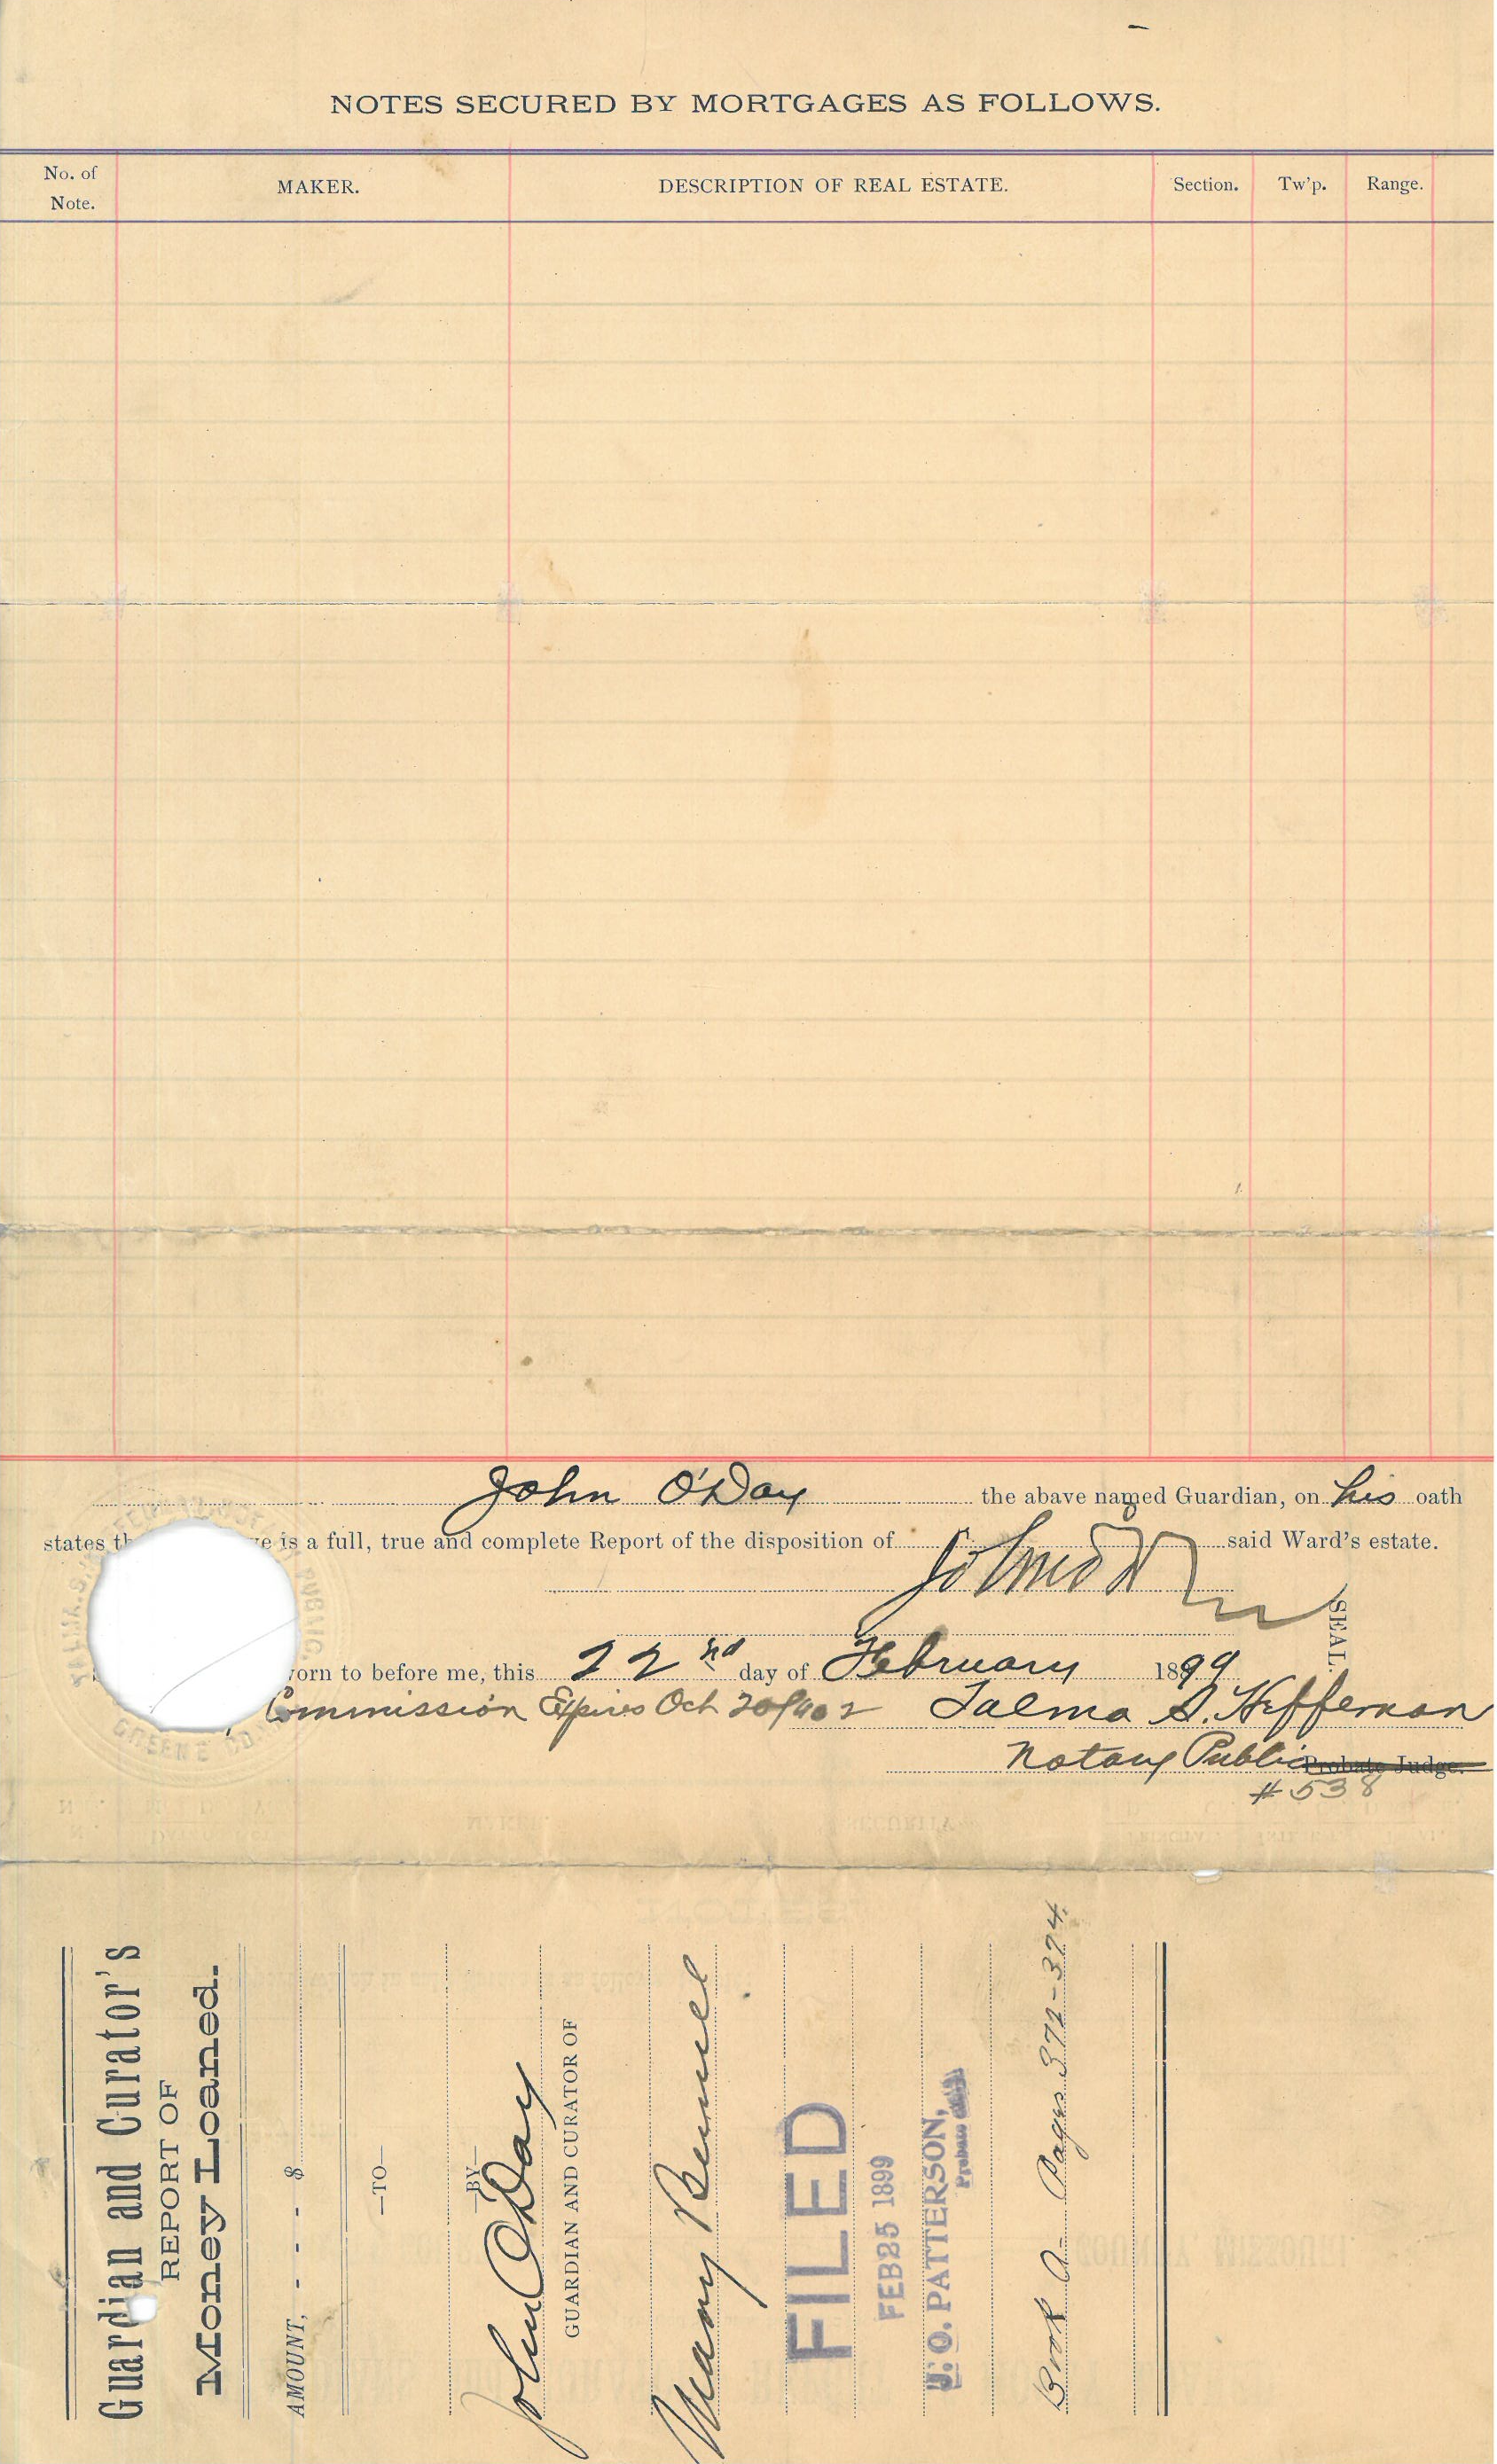 NOTES SECURED BY MORTGAGES AS FOLLOWS.
No. of Note.
MAKER.
DESCRIPTION OF REAL ESTATE.
Section.
Tw'p.
Range.
John O'Day the abave named Guardian, on his oath
states is a full, true and complete Report of the disposition of said Ward's estate.
SEAL.
orn to before me, this 22nd day of February 1899
Commission Expires Oct 20/1902 Talma S. Heffernan
Notary Public Probate Judge.
#538
GREENE CO.
Guardian and Curator's
REPORT OF
Money Loaned.
AMOUNT, - - - $
—TO—
—BY—
John O'Day
GUARDIAN AND CURATOR OF
Mary Bennel
FILED
FEB 25 1899
J. O. PATTERSON,
Probate
Book A- Pages 372-374.